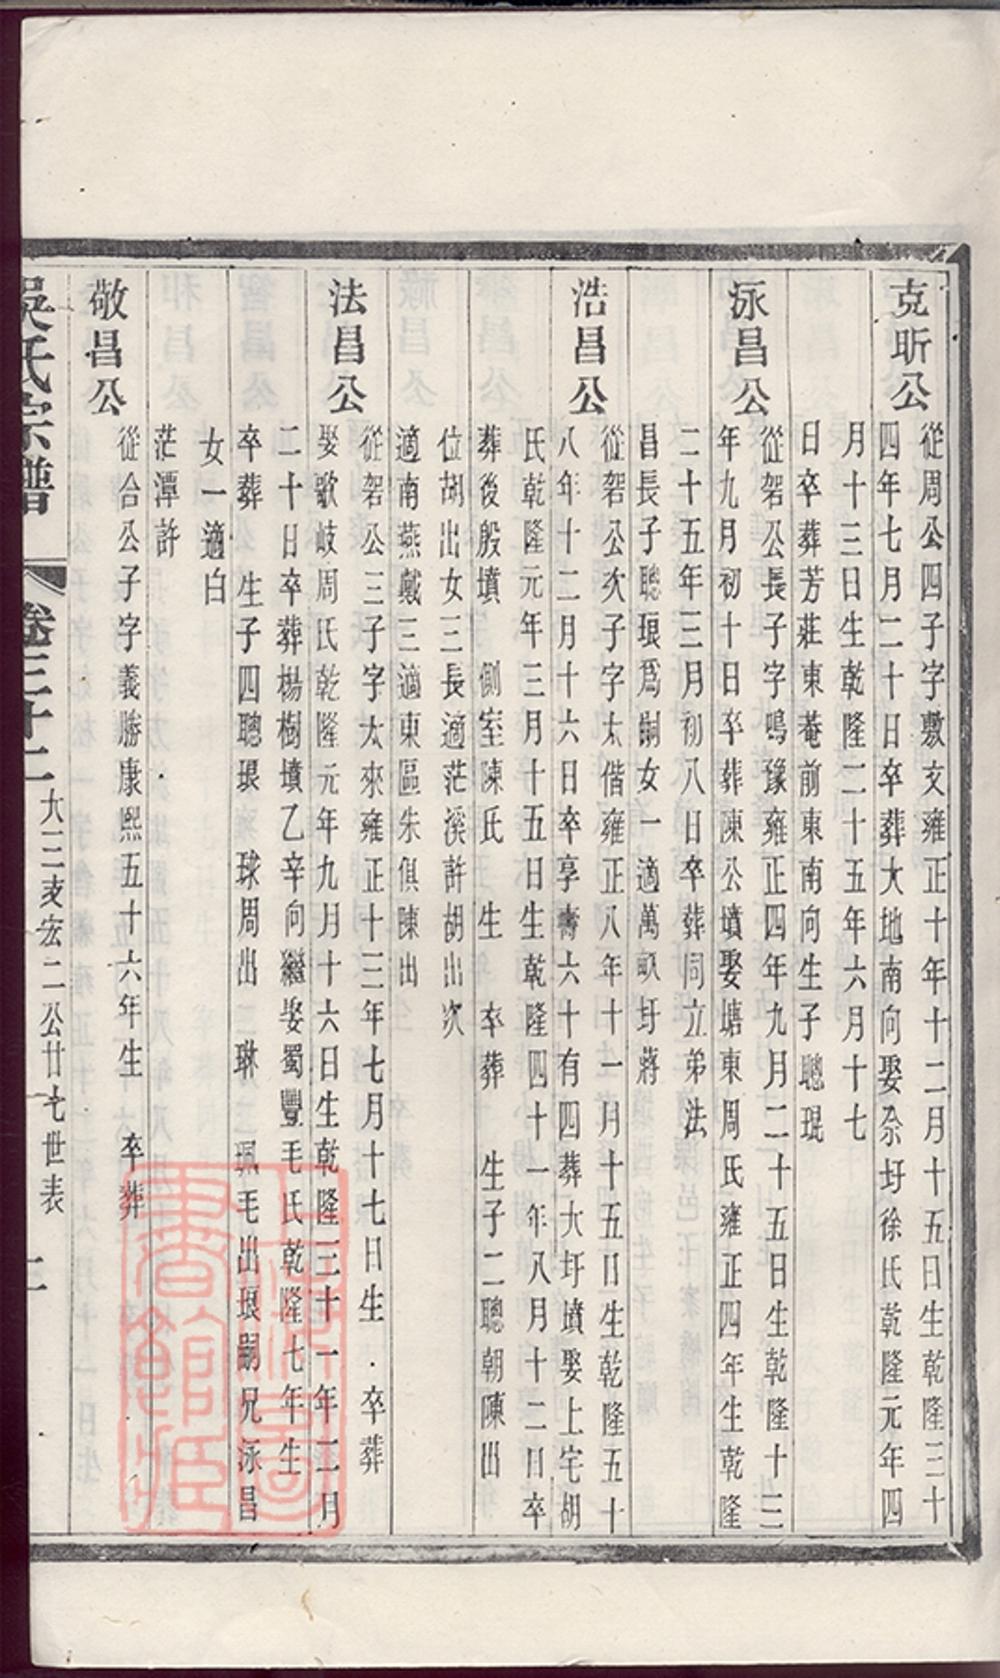 克昕公
從周公四子字敷文雍正十年十二月十五日生乾隆三十
四年七月二十日卒葬大地南向娶佘圩徐氏乾隆元年四
月十三日生乾隆二十五年六月十七
日卒葬芳莊東菴前東南向生子聰琨
泳昌公
從袈公長子字鳴豫雍正四年九月二十五日生乾隆十三
年九月初十日卒葬陳公墳娶塘東周氏雍正四年生乾隆
二十五年三月初八日卒葬同立弟法
昌長子聰琅爲嗣女一適萬畝圩蔣
浩昌公
從袈公次子字太偕雍正八年十一月十五日生乾隆五十
八年十二月十六日卒享壽六十有四葬大圩墳娶上宅胡
氏乾隆元年三月十五日生乾隆四十一年八月十二日卒
葬後般墳 側室陳氏 生 卒葬 生子二聰朝陳出
位胡出女三長適茫溪許胡出次
適南燕戴三適東區朱俱陳出
法昌公
從袈公三子字太來雍正十三年七月十七日生 卒葬
娶歌岐周氏乾隆元年九月十六日生乾隆三十一年二月
二十日卒葬楊樹墳乙辛向繼娶蜀豐毛氏乾隆七年生
卒葬 生子四聰琅 球周出 琳 珮毛出琅嗣兄泳昌
女一適白
茫潭許
敬昌公
從合公子字義勝康熙五十六年生 卒葬
吳氏宗譜 卷三十二 大三支宏二公廿七世表 二
上海圖書館藏